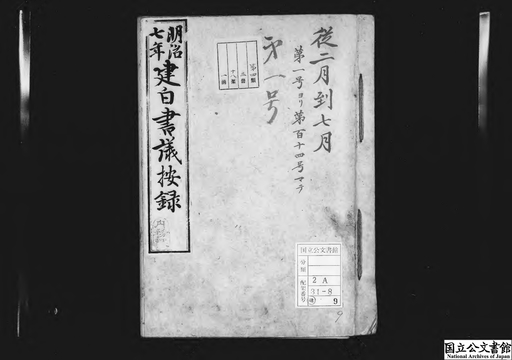 従二月到七月
第一号ヨリ第百十四号マテ
第一号
明治七年
建白書議按録
国立公文書館
分類
配架番号
2A
31-8
9
国立公文書館
National Archives of Japan